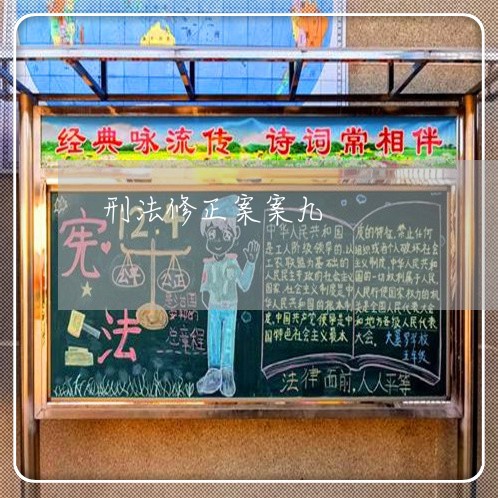 经典咏流传 诗词常相伴
刑法修正案案九
12.4
宪
法
公平
公正
总章程
中华人民共和国
是工人阶级领导的,以
工农联盟为基础的
人民民主专政的社会主义
国家,社会主义制度是中
华人民共和国的根本制
度,中国共产党领导是中
国特色社会主义最本
质的特征,禁止任何
组织或者个人破坏社会
主义制度,中华人民共和
国的一切权利属于人民,
人民行使国家权力的机
关是全国人民代表大会
和地方各级人民代表
大会.
五年级
法律面前,人人平等